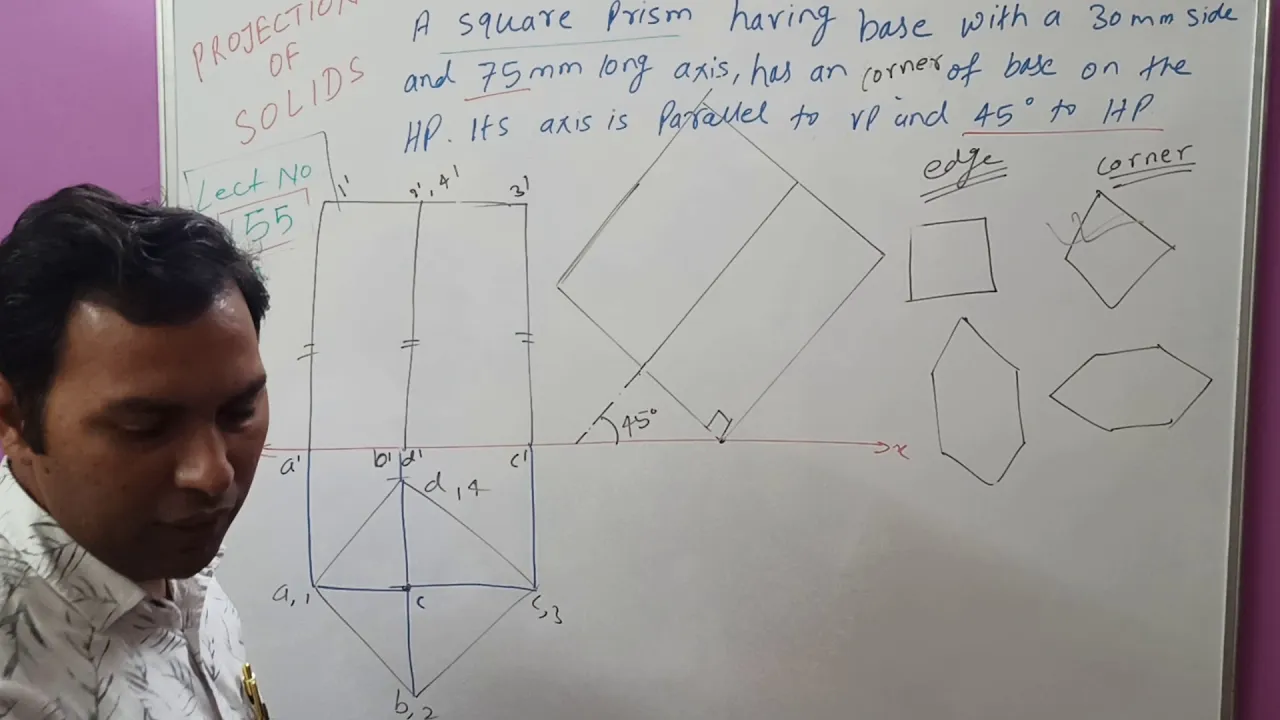 PROJECTION
OF
SOLIDS
Lect No
55
A square Prism having base with a 30mm side
and 75mm long axis, has an corner of base on the
HP. Its axis is Parallel to VP and 45° to HP
edge
corner
1'
2', 4'
3'
45°
a'
b' d'
c'
x
d, 4
a, 1
c
c, 3
b, 2